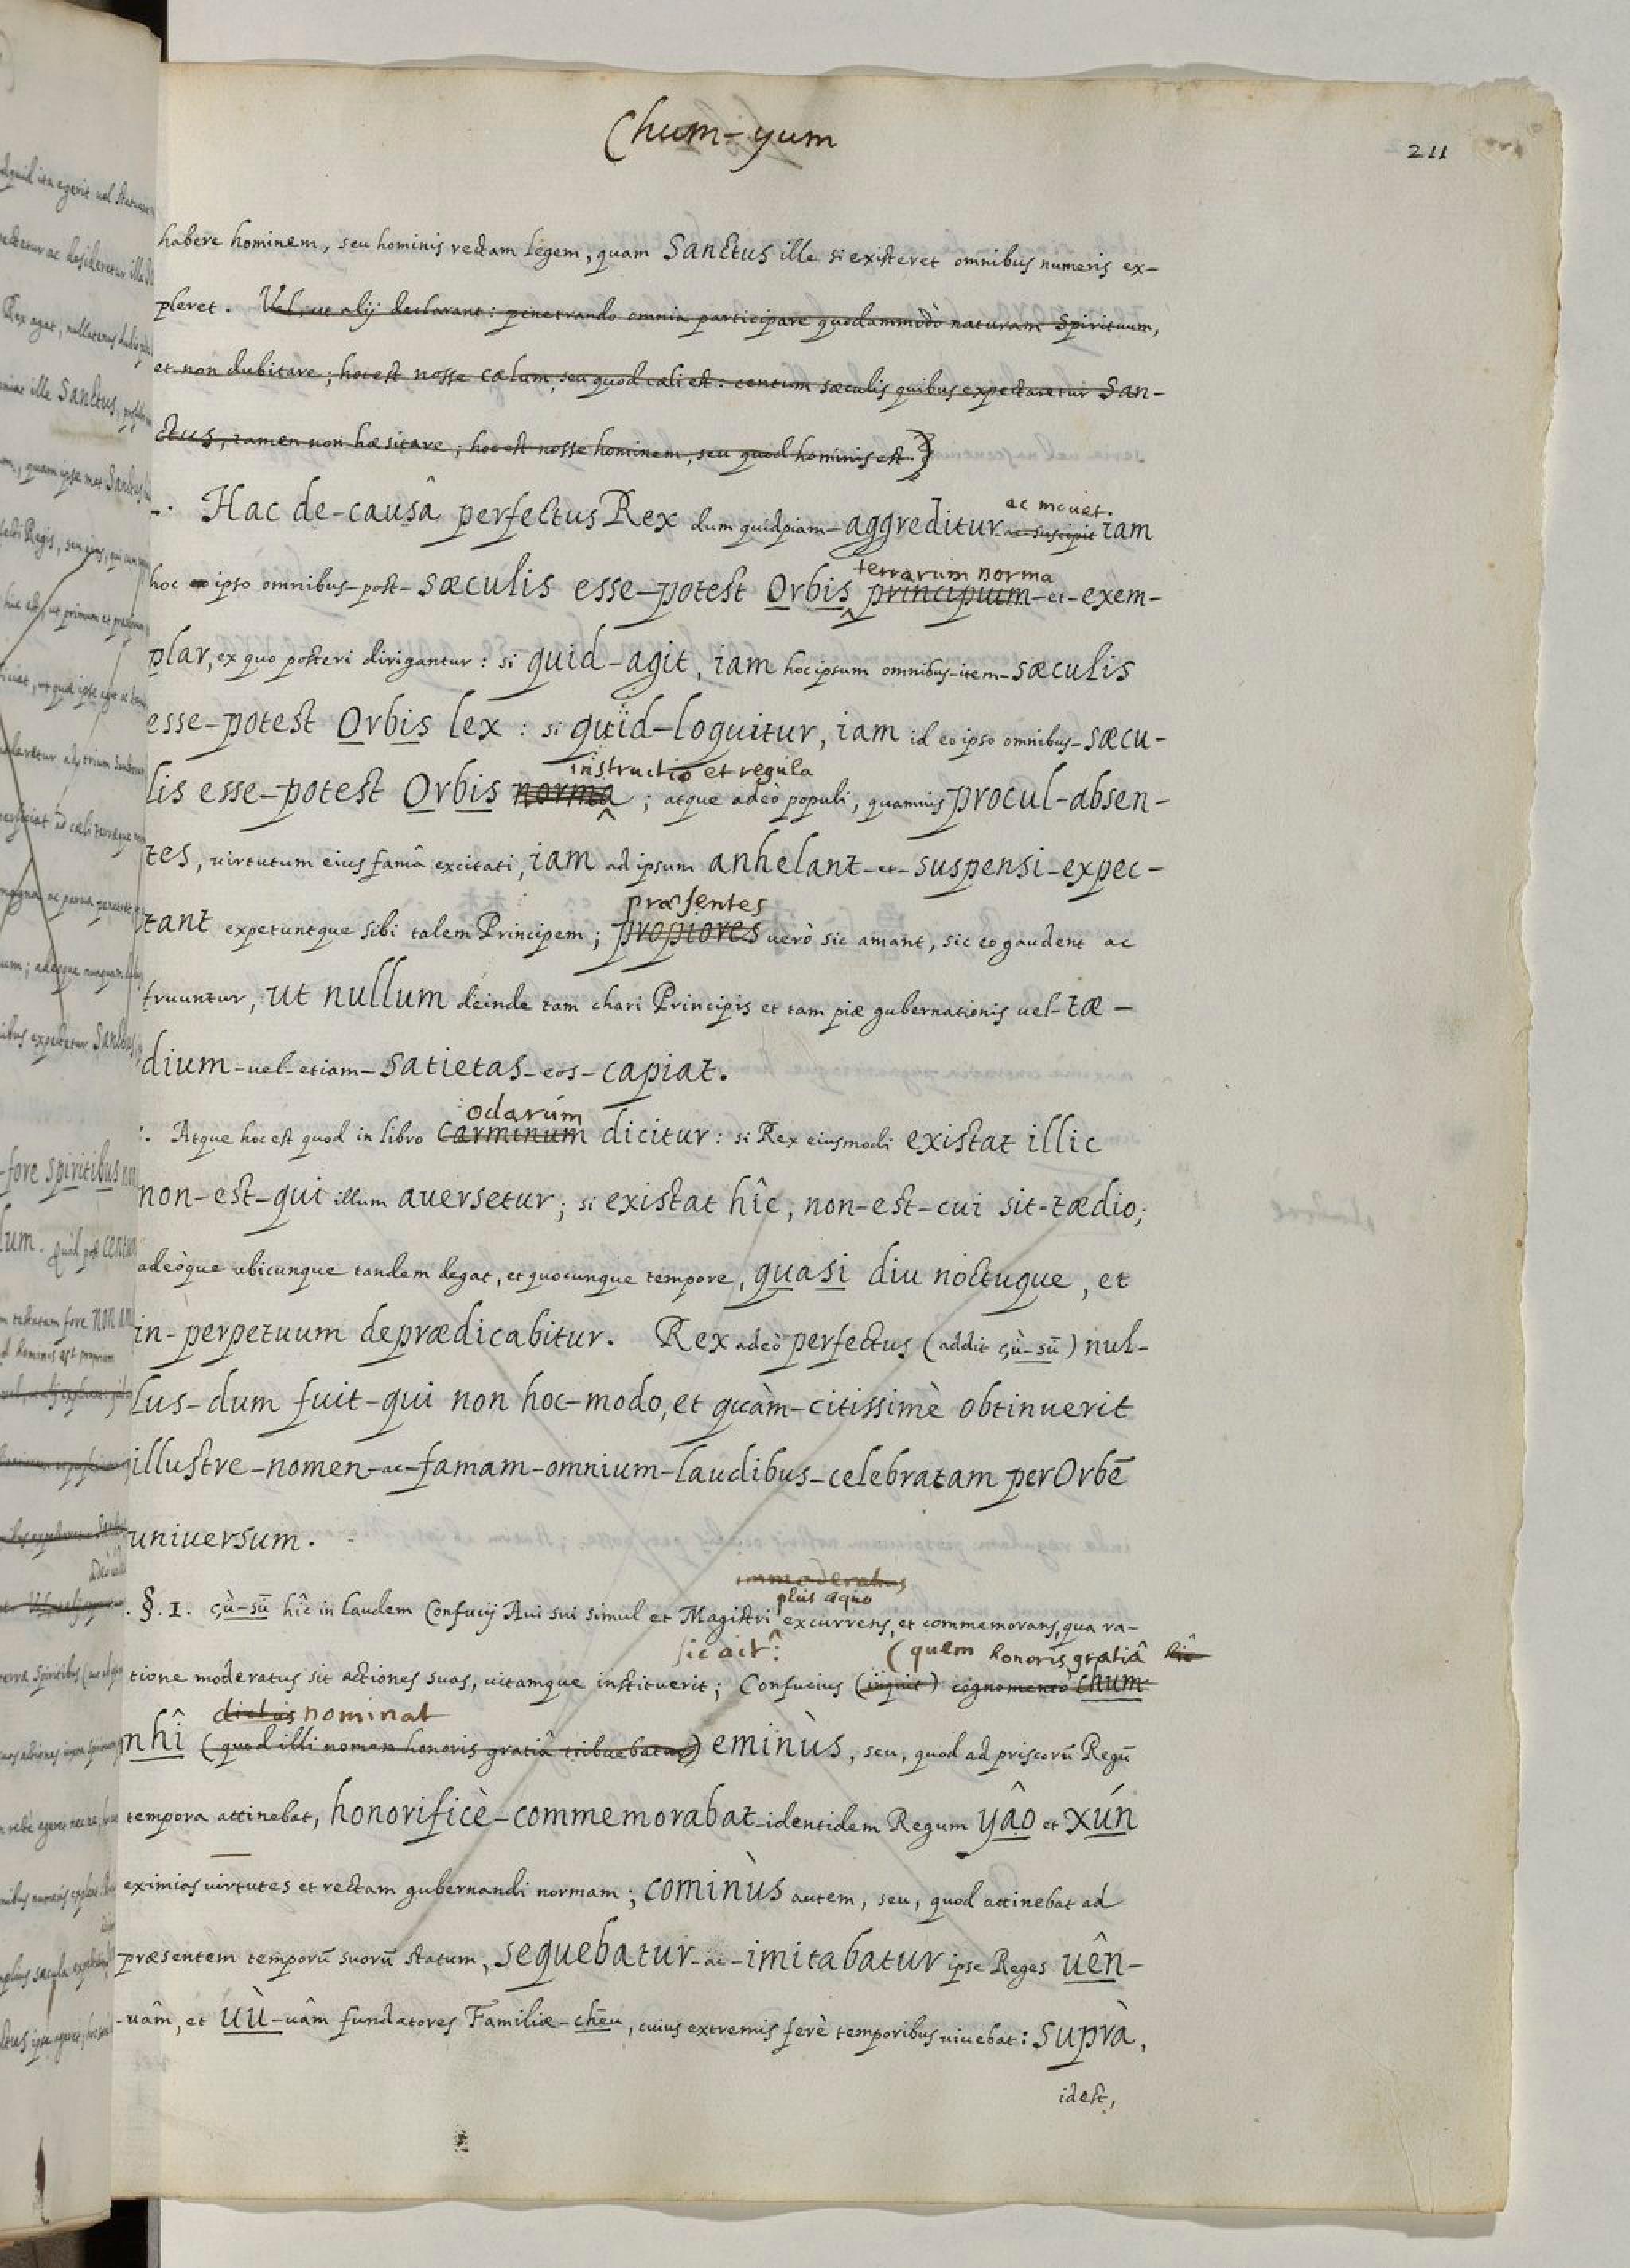 Chum-yum
211
habere hominem, seu hominis rectam legem, quam Sanctus ille si existeret omnibus numeris ex-
pleret. Vel, ut alij declarant: penetrando omnia participare quodammodò naturam Spirituum,
et non dubitare; hoc est nosse cælum, seu quod cæli est: centum sæculis quibus expectaretur San-
ctus, tamen non hæsitare; hoc est nosse hominem, seu quod hominis est.
ac movet.
Hac de-causâ perfectus Rex dum quidpiam-aggreditur ac suscipit iam
terrarum norma
hoc ipso omnibus-post-sæculis esse-potest Orbis principium-et-exem-
plar, ex quo posteri dirigantur: si quid-agit, iam hoc ipsum omnibus-item-sæculis
esse-potest Orbis lex: si quid-loquitur, iam id eo ipso omnibus-sæcu-
instructio et regula
lis esse-potest Orbis norma; atque adeò populi, quamuis procul-absen-
tes, uirtutum eius famâ excitati, iam ad ipsum anhelant-et-suspensi-expec-
præsentes
tant expetuntque sibi talem Principem; propiores uerò sic amant, sic eo gaudent ac
fruuntur, ut nullum deinde tam chari Principis et tam piæ gubernationis uel-tæ-
dium-uel-etiam-satietas-eos-capiat.
odarum
Atque hoc est quod in libro Carminum dicitur: si Rex eiusmodi existat illic
non-est-qui illum auersetur; si existat hîc, non-est-cui sit-tædio;
adeòque ubicunque tandem degat, et quocunque tempore, quasi diu noctuque, et
in-perpetuum deprædicabitur. Rex adeò perfectus (addit çù-sū) nul-
lus-dum fuit-qui non hoc-modo, et quàm-citissimè obtinuerit
illustre-nomen-ac-famam-omnium-laudibus-celebratam per Orbē
uniuersum.
immoderatus
plus æquo
§.1. çù-sū hîc in laudem Confucij Aui sui simul et Magistri excurrens, et commemorans, qua ra-
sic ait: (quem honoris gratiâ hîc
tione moderatus sit actiones suas, uitamque instituerit; Confucius (inquit) cognomento chum
dictus nominat
nhî (quod illi nomen honoris gratiâ tribuebatur) eminùs, seu, quod ad priscorū Regū
tempora attinebat, honorificè-commemorabat-identidem Regum yâo et xún
eximias uirtutes et rectam gubernandi normam; cominùs autem, seu, quod attinebat ad
præsentem temporū suorū statum, sequebatur-ac-imitabatur ipse Reges uên-
-uâm, et uù-uâm fundatores Familiæ-chēu, cuius extremis ferè temporibus uiuebat: suprà,
idest,